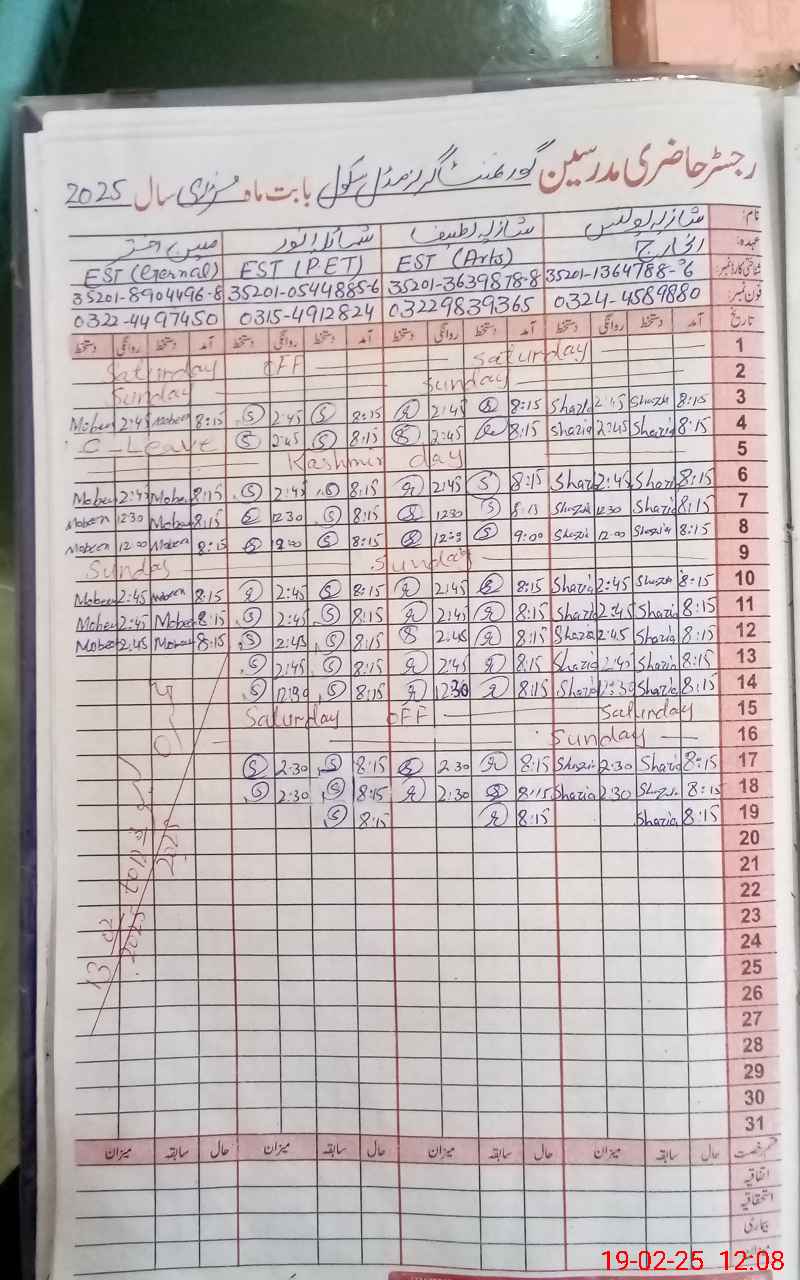 رجسٹر حاضری مدرسین گورنمنٹ گرلز مڈل سکول بابت ماہ فروری سال 2025
نام: شازیہ یونس شازیہ لطیف شمائلہ انور مبین اختر
عہدہ: انچارج EST (Arts) EST (P.ET) EST (Gernal)
شناختی کارڈ نمبر: 35201-1364788-6 35201-3639878-8 35201-0544885-6 35201-8904496-8
فون نمبر: 0324-4589880 03229839365 0315-4912824 0322-4497450
تاریخ آمد دستخط روانگی دستخط آمد دستخط روانگی دستخط آمد دستخط روانگی دستخط آمد دستخط روانگی دستخط
1 Saturday OFF Saturday
2 Sunday Sunday
3 8:15 Shazia 2:45 Shazia 8:15 2:45 8:15 S 2:45 S 8:15 Mobeen 2:45 Mobeen
4 8:15 Shazia 2:45 Shazia 8:15 2:45 8:15 S 2:45 S C-Leave
5 Kashmir day
6 8:15 Shazia 2:45 Shazia 8:15 S 2:45 8:15 S 2:45 S 8:15 Mobeen 2:45 Mobeen
7 8:15 Shazia 12:30 Shazia 8:15 S 12:30 8:15 S 12:30 8:15 Mobeen 12:30 Mobeen
8 8:15 Shazia 12:00 Shazia 9:00 S 8:15 S 8:15 Mobeen 12:00 Mobeen
9 Sunday Sunday
10 8:15 Shazia 2:45 Shazia 8:15 2:45 8:15 S 2:45 8:15 Mobeen 2:45 Mobeen
11 8:15 Shazia 2:45 Shazia 8:15 2:45 8:15 S 2:45 S 8:15 Mobeen 2:45 Mobeen
12 8:15 Shazia 2:45 Shazia 8:15 2:45 8:15 S 2:45 S 8:15 Mobeen 2:45 Mobeen
13 8:15 Shazia 2:45 Shazia 8:15 2:45 8:15 S 2:45 S
14 8:15 Shazia 12:30 Shazia 8:15 12:30 8:15 S 12:30 S
15 Saturday OFF Saturday
16 Sunday
17 8:15 Shazia 2:30 Shazia 8:15 2:30 S 8:15 S 2:30 S
18 8:15 Shazia 2:30 Shazia 8:15 2:30 8:15 S 2:30 S
19 8:15 Shazia 8:15 8:15 S
20
21
22
23
24
25
26
27
28
29
30
31
حال سابقہ میزان حال سابقہ میزان حال سابقہ میزان حال سابقہ میزان
اتفاقیہ
استحقاقیہ
بیماری
میزان
19-02-25 12:08